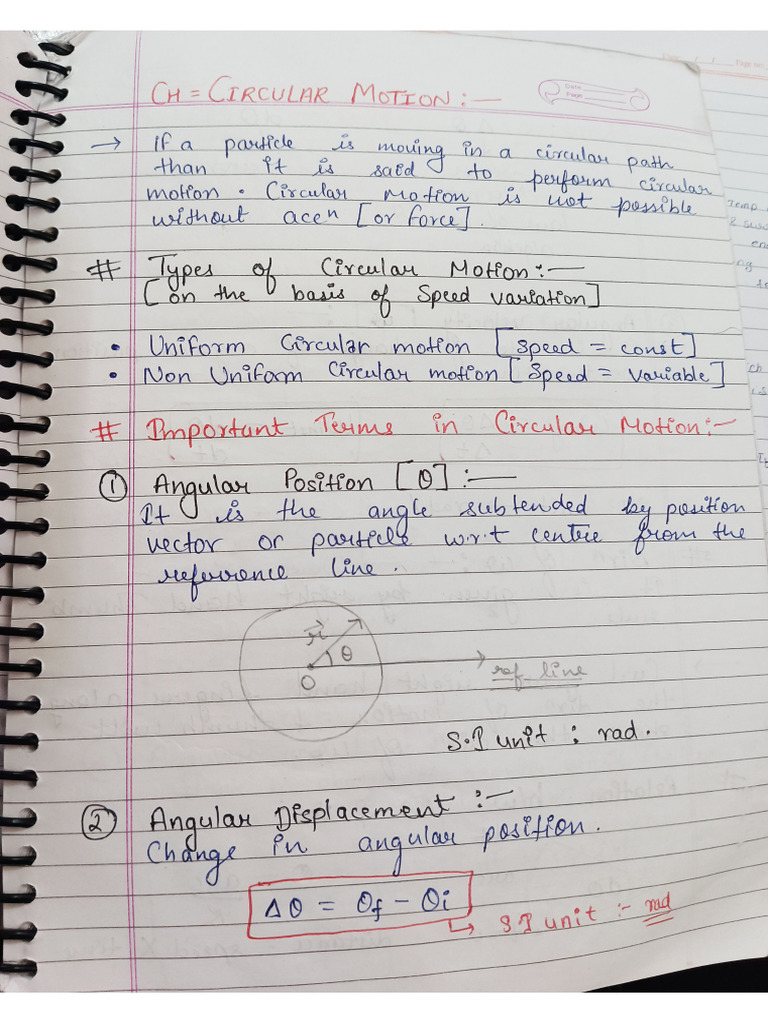 CH = CIRCULAR MOTION :-
Date
Page
→ If a particle is moving in a circular path
than it is said to perform circular
motion. Circular motion is not possible
without acen [or force].
# Types of Circular Motion:-
[on the basis of Speed variation]
• Uniform Circular motion [speed = const]
• Non Uniform Circular motion [Speed = variable]
# Important Terms in Circular Motion:-
① Angular Position [θ] :-
It is the angle subtended by position
vector or particle w.r.t centre from the
reference line.
r⃗
θ
O
ref line
S.I unit : rad.
② Angular Displacement :-
Change in angular position.
Δθ = θf - θi
↳ S.I unit :- rad